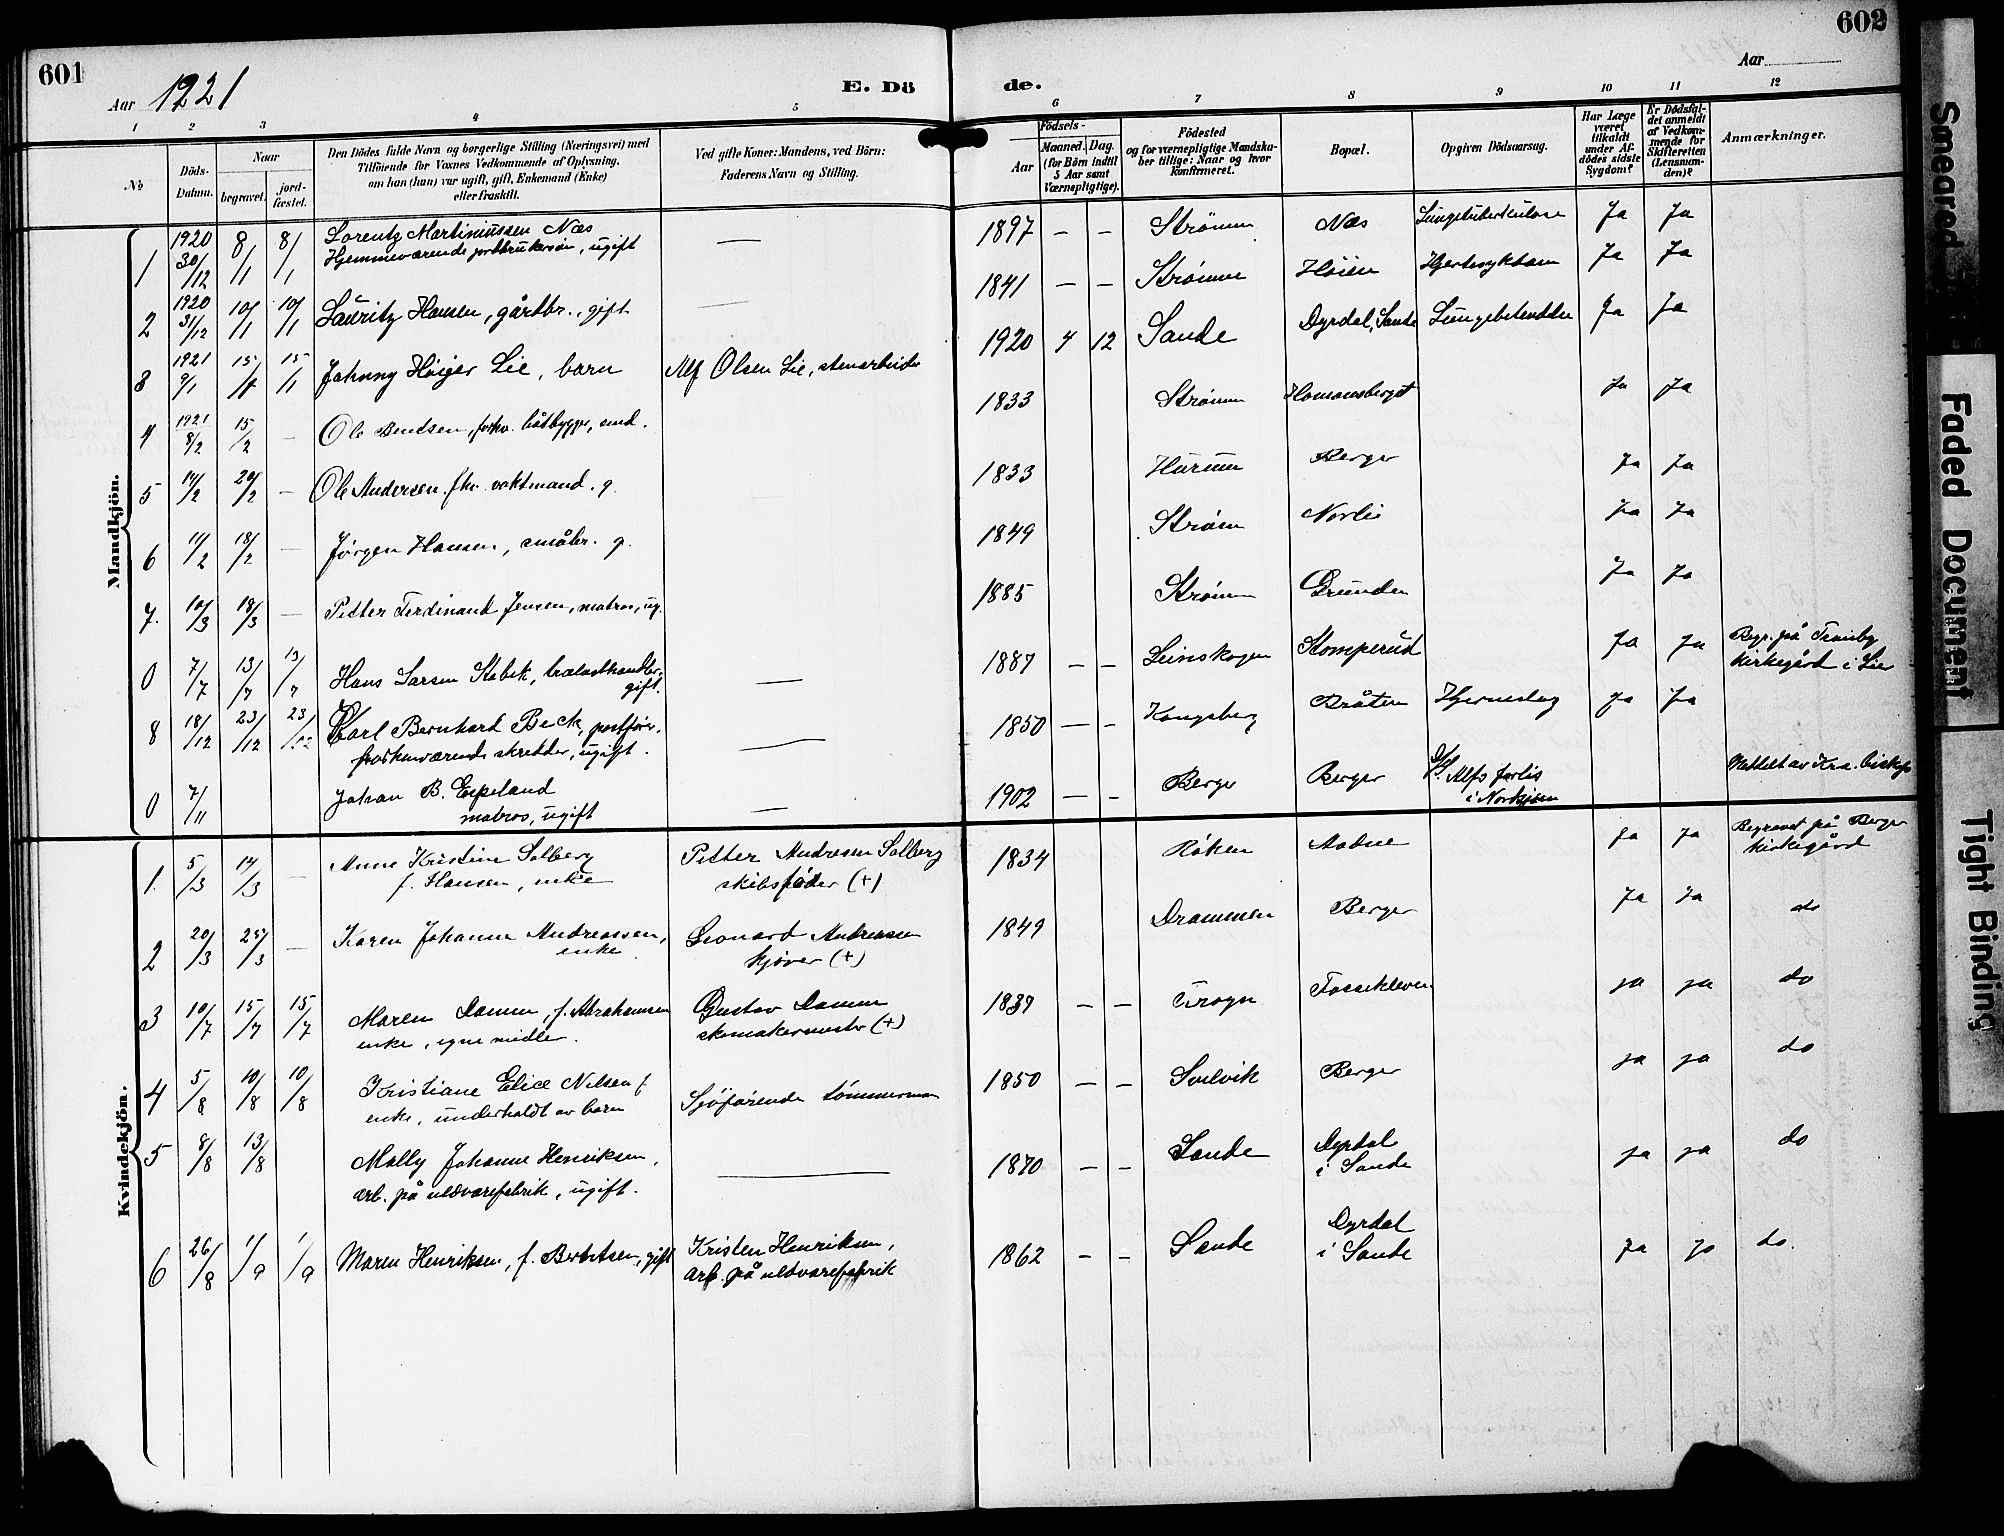 601
Aar 1921
E. Dö
de.
Aar
602
1 2 3 4 5
6 7 8 9 10 11 12
No
Döds-Datum.
Naar
begravet.
jord-fæstet.
Den Dödes fulde Navn og borgerlige Stilling (Næringsvei) med
Tilföiende for Voxnes Vedkommende af Oplysning,
om han (hun) var ugift, gift, Enkemand (Enke)
eller fraskilt.
Ved gifte Koner: Mandens, ved Börn:
Faderens Navn og Stilling.
Födsels-
Aar
Maaned. Dag.
(for Börn indtil
5 Aar samt
Værnepligtige).
Födested
og for værnepligtige Mandska-
ber tillige: Naar og hvor
konfirmeret.
Bopæl.
Opgiven Dödsaarsag.
Har Læge
været
tilkaldt
under Af-
dödes sidste
Sygdom?
Er Dödsfal-
det anmeldt
af Vedkom-
mende for
Skifteretten
(Lensman-
den)?
Anmærkninger.
Mandkjön.
1 1920 30/12 8/1 8/1 Lorentz Martiniussen Næs
Hjemmeværende, ugift
— 1897 — — Strömm Næs Lungetuberkulose Ja Ja
2 1920 31/12 10/1 10/1 Lauritz Hansen, gårdbr., gift
— 1841 — — Strømm Höien Hjertesykdom Ja Ja
3 1921 9/1 15/1 15/1 Johnny Höiger Lie, barn Alf Olsen Lie, stenarbeider
1920 4 12 Sande Dyrdal, Sande Lungebetendelse Ja Ja
4 1921 8/2 15/2 — Ole Bentsen, forhv. båtbygger, enkd.
1833 Strömm Homansberget Ja Ja
5 14/2 20/2 — Ole Andersen fhv. vaktmand. g.
1833 Hurum Berger Ja Ja
6 11/2 18/2 — Jørgen Hansen, småbr. g.
1849 Strøm Norlie Ja Ja
7. 10/3 18/3 — Petter Ferdinand Jensen, matros, ug.
1885 Strömm Grunden Ja Ja
0 7/7 13/7 13/7 Hans Larsen Stabek, trælasthandler,
gift.
— 1887 — — Leinskogen Stomperud Ja Ja Begr. på Tranby
kirkegård i Lier
8 18/12 23/12 23/12 Carl Bernhard Beck,
forhenværende skredder, ugift.
— 1850 — — Kongsberg Bråten Hjerneslag Ja Ja
0 7/11 Johan B. Espeland
matros, ugift
— 1902 — — Berger Berger D/S Alfs forlis
i Nordsjøen
Meddelt av Kra. biskop
Kvindekjön.
1. 5/3 14/3 — Anne Kristine Solberg
f. Hansen, enke
Petter Andresen Solberg
skibsfører (+)
1834 Røken Aadne Ja Ja Begravet på Berger
kirkegård
2 20/3 25/3 — Karen Johanne Andreassen,
enke
Leonard Andreassen
kjører (+)
1849 Drammen Berger Ja Ja do
3 10/7 15/7 15/7 Maren Damm, f. Abrahamsen
enke, egne midler.
Gustav Damm
skomakermester (+)
1839 — — Frogn Fossekleven Ja Ja do
4 5/8 10/8 10/8 Kristiane Elice Nilsen f.
enke, underholdt av barn
Sjöfarende tømmermann
1850 — — Svelvik Berger Ja Ja do
5 8/8 13/8 Molly Johanne Henriksen,
arb. på uldvarefabrik, ugift.
— 1870 — — Sande Dyrdal
i Sande
Ja Ja do
6 26/8 1/9 1/9 Maren Henriksen, f. Berntsen, gift
Kristen Henriksen,
arb. på uldvarefabrik
1862 — — Sande Dyrdal
i Sande
Ja Ja do.
Smeared
Faded Document
Tight Binding